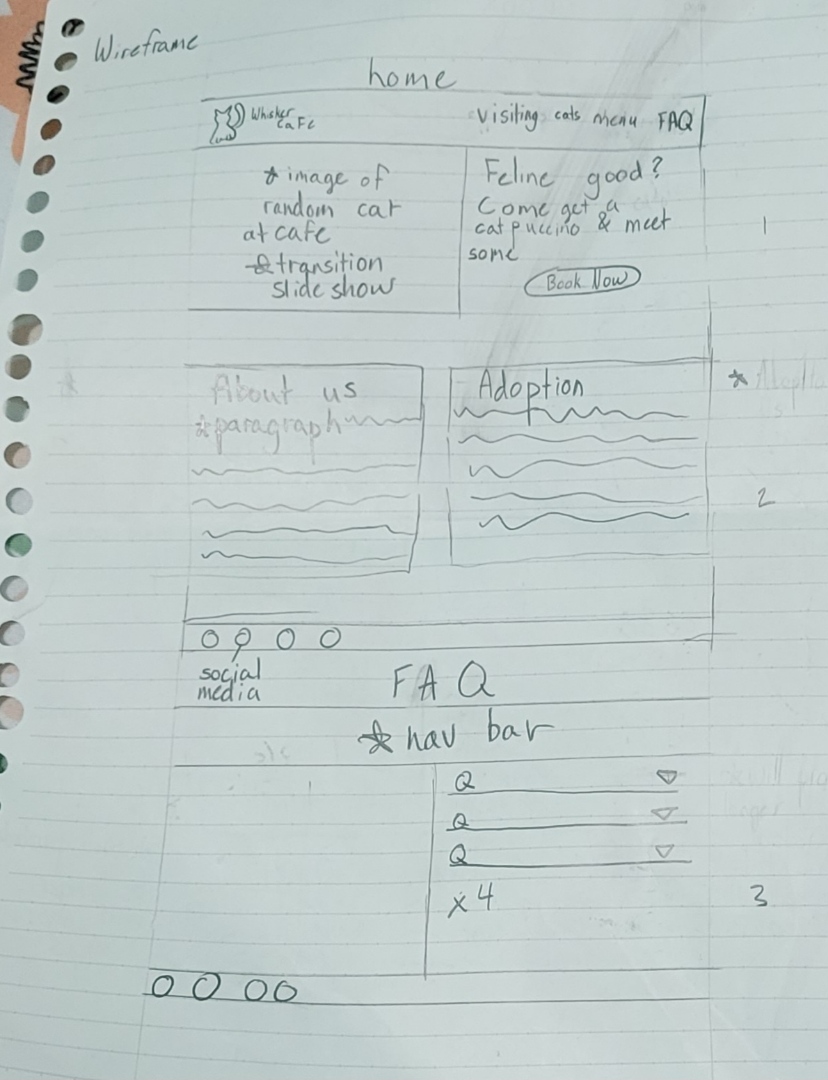 Wireframe
home
Whisker
CaFe
Visiting cats menu FAQ
* image of
random cat
at cafe
* transition
slide show
Feline good?
Come get a
catpuccino & meet
some
Book Now
1
About us
* paragraph
Adoption
*
2
social
media
FAQ
* nav bar
Q
Q
Q
x4
3